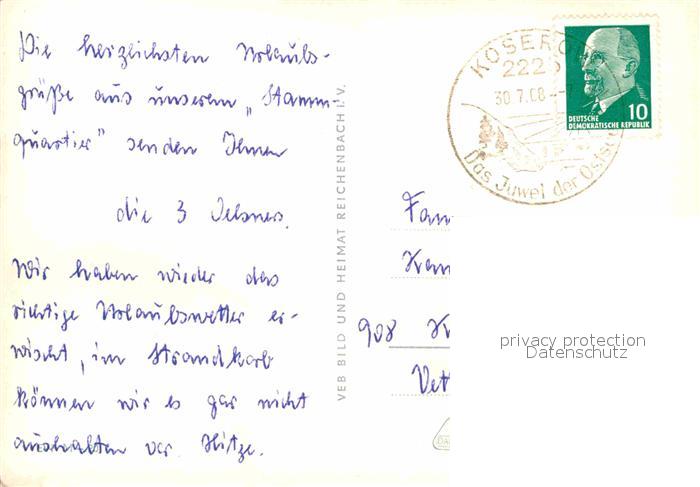 Die herzlichsten Urlaubs-
grüße aus unserem „Stamm-
quartier" senden Ihnen
die 3
Wir haben wieder das
richtige Urlaubswetter er-
wischt, im Strandkorb
können wir es gar nicht
aushalten vor Hitze.
VEB BILD UND HEIMAT REICHENBACH I. V.
KOSERO
222
30.7.68
Das Juwel der Ostsee
10
DEUTSCHE
DEMOKRATISCHE REPUBLIK
Fam
908
privacy protection
Datenschutz